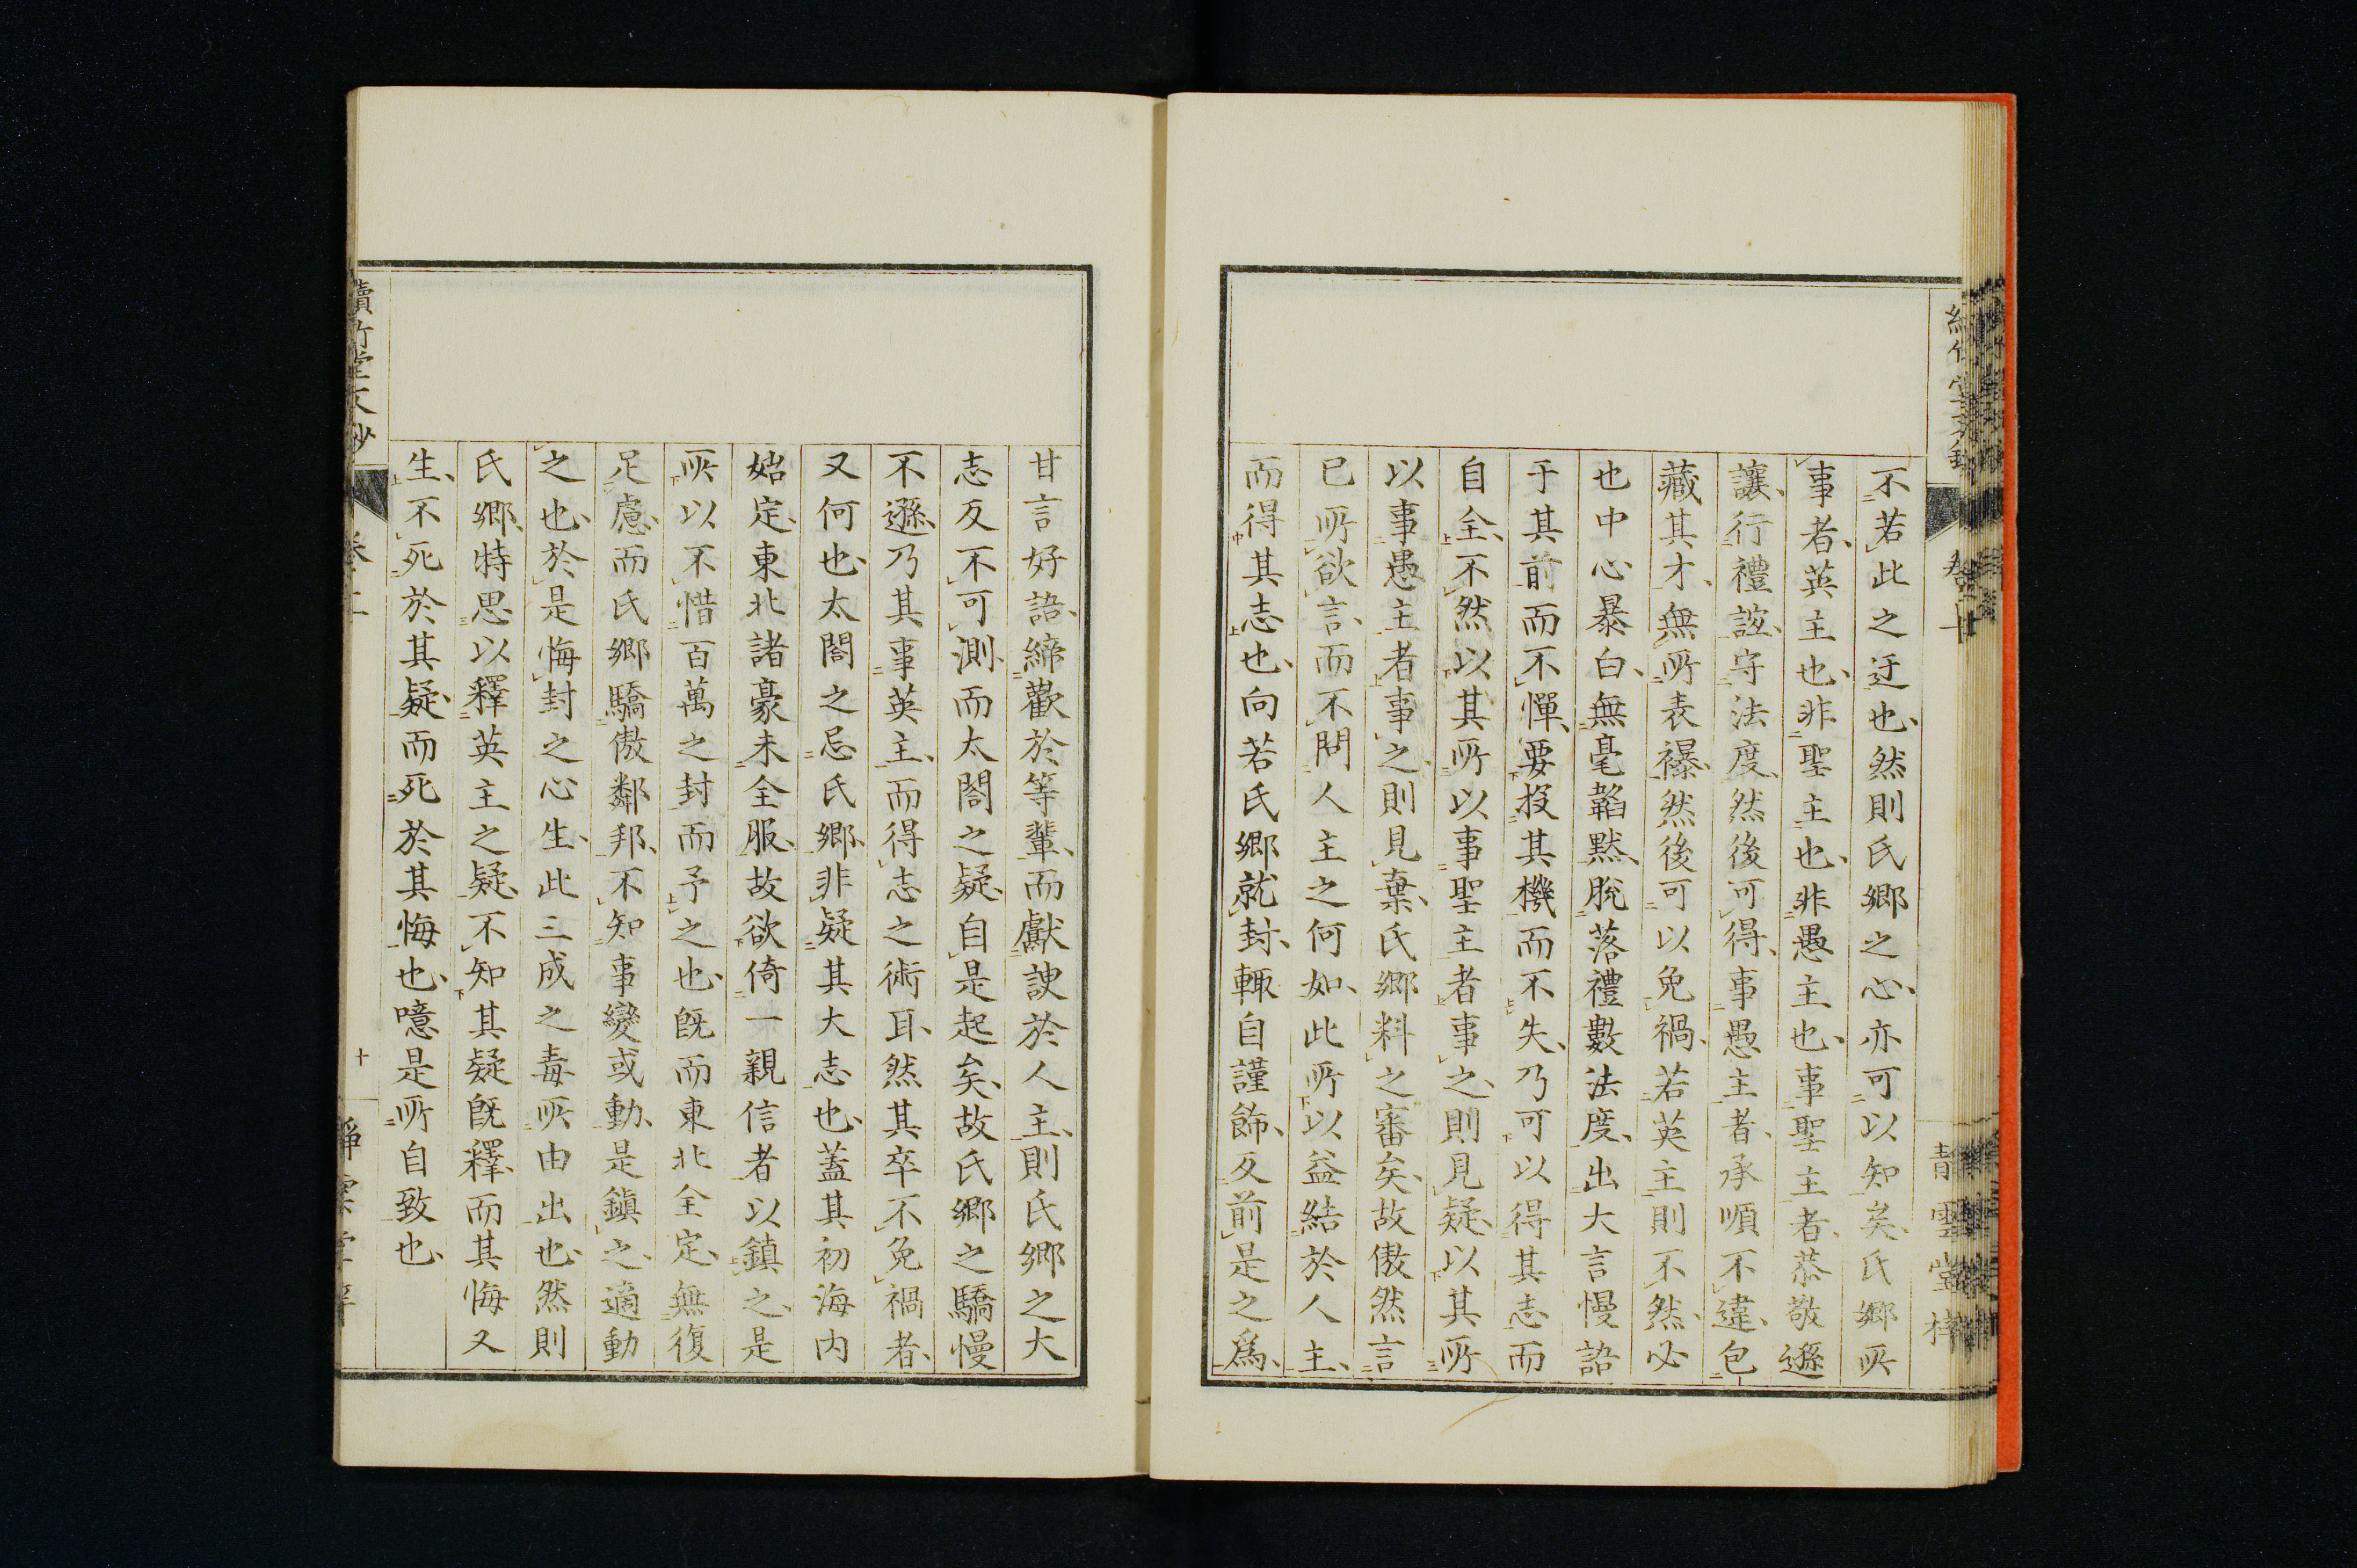 不若此之迂也然則氏郷之心亦可以知矣氏郷所
事者英主也非聖主也非愚主也事聖主者恭敬遜
讓行禮誼守法度然後可得事愚主者承順不違包
藏其才無所表襮然後可以免禍若英主則不然必
也中心暴白無毫韜默脫落禮數法度出大言慢語
于其前而不憚要投其機而不失乃可以得其志而
自全不然以其所以事聖主者事之則見疑以其所
以事愚主者事之則見棄氏郷料之審矣故傲然言
已所欲言而不問人主之何如此所以益結於人主
而得其志也向若氏郷就封輙自謹飾反前是之爲
甘言好語締歡於等輩而獻諛於人主則氏郷之大
志反不可測而太閤之疑自是起矣故氏郷之驕慢
不遜乃其事英主而得志之術耳然其卒不免禍者
又何也太閤之忌氏郷非疑其大志也蓋其初海内
始定東北諸豪未全服故欲倚一親信者以鎮之是
所以不惜百萬之封而予之也既而東北全定無復
足慮而氏郷驕傲鄰邦不知事變或動是鎮之適動
之也於是悔封之心生此三成之毒所由出也然則
氏郷特思以釋英主之疑不知其疑既釋而其悔又
生不死於其疑而死於其悔也噫是所自致也
讀竹堂文鈔
十
青雲堂梓